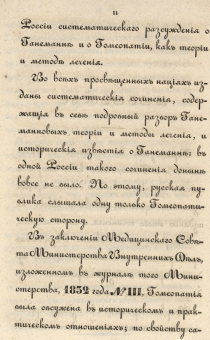 II
Россіи систематическаго разсужденія о
Ганеманнѣ и о Гомеопатіи, какъ теоріи
и методѣ леченія.
Во всѣхъ просвѣщенныхъ націяхъ из-
даны систематическія сочиненія, содер-
жащія въ себѣ подробный разборъ Ганс-
манновыхъ теоріи и методы леченія, и
историческія извѣстія о Ганеманнѣ: въ
одной Россіи такого сочиненія донынѣ
вовсе не было. По этому, русская пу-
блика слышала одну только Гомеопати-
ческую сторону.
Въ заключеніи Медицинскаго Совѣ-
та Министерства Внутреннихъ Дѣлъ,
изложенномъ въ журналѣ того Мини-
стерства, 1832 года № III, Гомеопатія
была обсужена въ историческомъ и прак-
тическомъ отношеніяхъ; по свойству са-